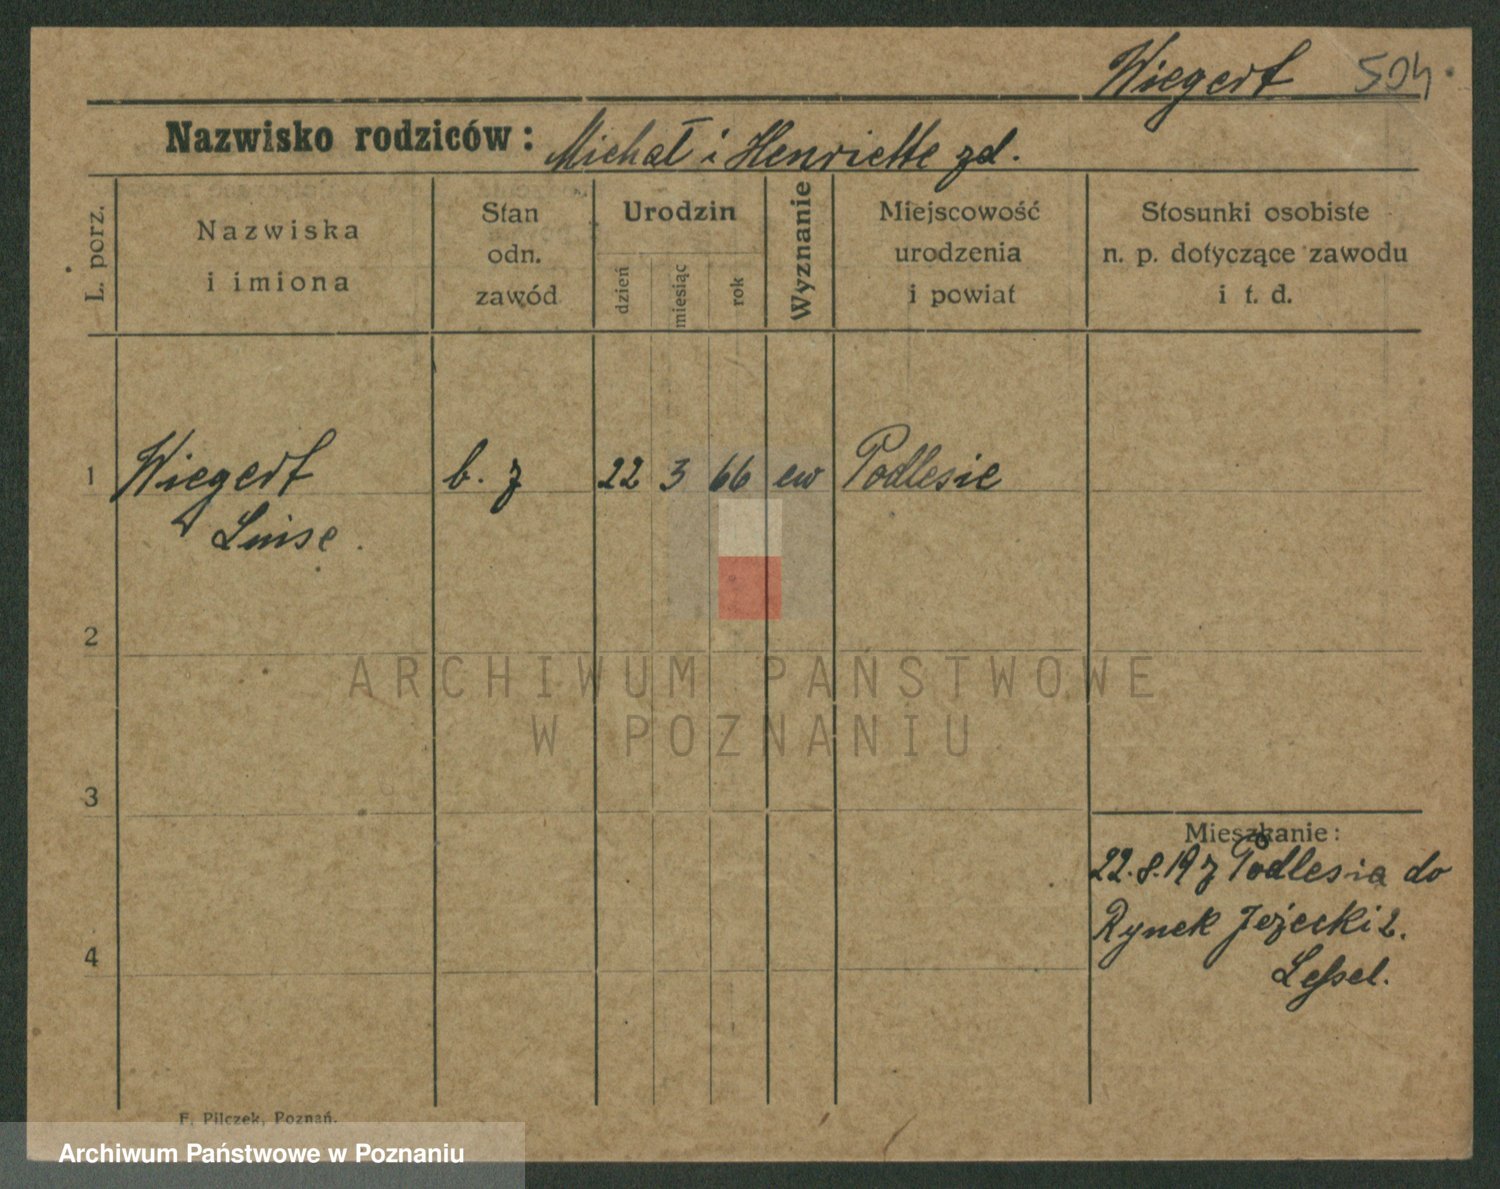 Wiegert 504
Nazwisko rodziców: Michał i Henriette zd.
L. porz.
Nazwiska
i imiona
Stan
odn.
zawód
Urodzin
dzień
miesiąc
rok
Wyznanie
Miejscowość
urodzenia
i powiat
Stosunki osobiste
n. p. dotyczące zawodu
i t. d.
1 Wiegert b. z 22 3 66 ew Podlesie
Luise.
2
3
4
Mieszkanie:
22.8.19 z Podlesia do
Rynek Jeżecki 2.
Leßel.
F. Pilczek, Poznań.
ARCHIWUM PAŃSTWOWE
W POZNANIU
Archiwum Państwowe w Poznaniu